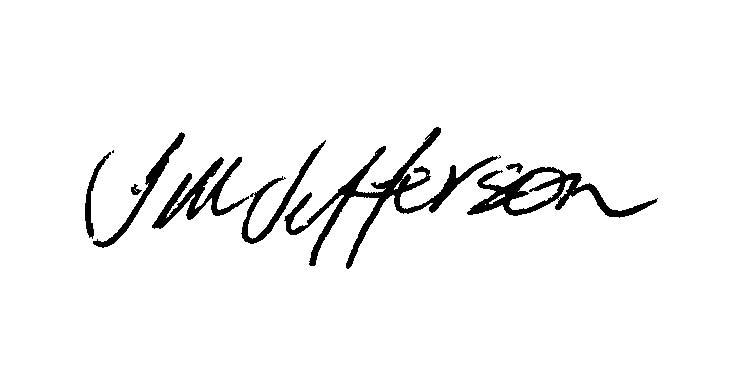 Jim Jefferson